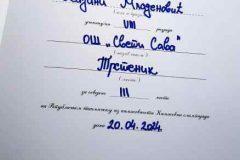 Младеновић
(име и презиме)
ученик/ца VIII разреда
ОШ „Свети Сава"
(назив школе)
Трстеник
(место)
за освојено III место
на Републичком такмичењу из књижевности Књижевна олимпијада
дана 20.04.2024.